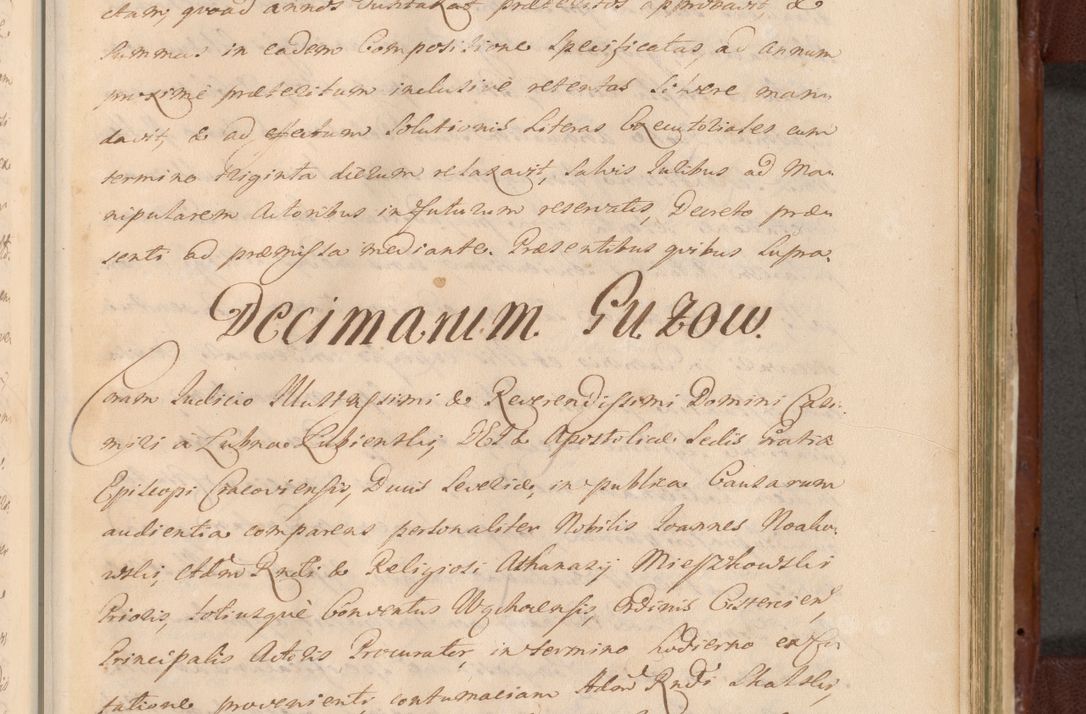 ctam, quoad annos juxta Rat præteritos approbavit, &
summas in eadem Compositione specificatas, ad annum
proximè præteritum inclusivè retentas solvere man-
davit, & ad effectum solutionis Literas Executoriales cum
termino triginta dierum relaxavit, salvis Juribus ad Ma-
nipularem Actoribus in futurum reservatis, Decreto præ-
senti ad præmissa mediante. Præsentibus quibus supra.
Decimarum. Guzow.
Coram Judicio Illustrissimi & Reverendissimi Domini Casi-
miri à Lubna Lubienski, DEI & Apostolicæ Sedis Gratia
Episcopi Cracoviensis, Ducis Severiæ, in publica Causarum
audientia comparens personaliter Nobilis Joannes Noako-
wski, Adm Rndi & Religiosi Athanasij Mieszkowski
Prioris, totiusquè Conventus Wąchocensis, Ordinis Cisterciens
Principalis Actoris Procurator, in termino hodierno ex
tatione provenienti contumaciam Adm Rndi Skalski,